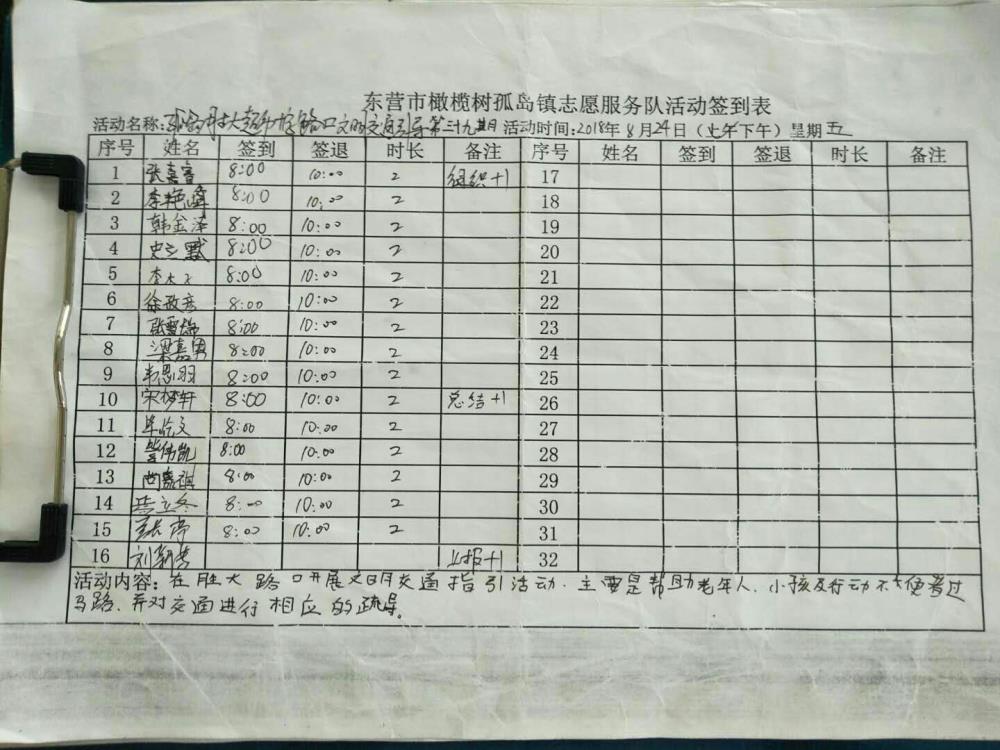 东营市橄榄树孤岛镇志愿服务队活动签到表
活动名称: 胜大超市路口文明交通引导第三十九期 活动时间:2018年8月24日（上午下午）星期五
序号 姓名 签到 签退 时长 备注 序号 姓名 签到 签退 时长 备注
1 张嘉睿 8:00 10:00 2 组织+1 17
2 李艳 8:00 10:00 2 18
3 韩金泽 8:00 10:00 2 19
4 史 8:00 10:00 2 20
5 李 8:00 10:00 2 21
6 徐政彦 8:00 10:00 2 22
7 张雪 8:00 10:00 2 23
8 梁嘉男 8:00 10:00 2 24
9 韦思羽 8:00 10:00 2 25
10 宋梦轩 8:00 10:00 2 总结+1 26
11 文 8:00 10:00 2 27
12 伟凯 8:00 10:00 2 28
13 尚嘉祺 8:00 10:00 2 29
14 立冬 8:00 10:00 2 30
15 8:00 10:00 2 31
16 刘 上报+1 32
活动内容: 在胜大路口开展文明交通指引活动.主要是帮助老年人、小孩及行动不便者过
马路.并对交通进行相应的疏导.